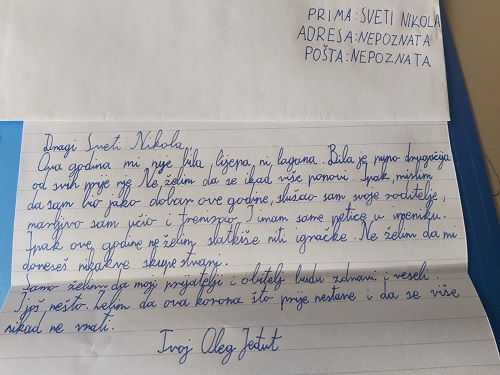 PRIMA: SVETI NIKOLA
ADRESA: NEPOZNATA
POŠTA: NEPOZNATA
Dragi Sveti Nikola,
Ova godina mi nije bila lijepa, ni lagana. Bila je puno drugačija
od svih prije nje. Ne želim da se ikad više ponovi. Ipak, mislim
da sam bio jako dobar ove godine, slušao sam svoje roditelje,
marljivo sam učio i trenirao. I imam same petice u imeniku.
Ipak ove godine ne želim slatkiše niti igračke. Ne želim da mi
doneseš nikakve skupe stvari.
Samo želim da moji prijatelji i obitelj budu zdravi i veseli.
Još nešto. Želim da ova korona što prije nestane i da se više
nikad ne vrati.
Tvoj Oleg Jedut